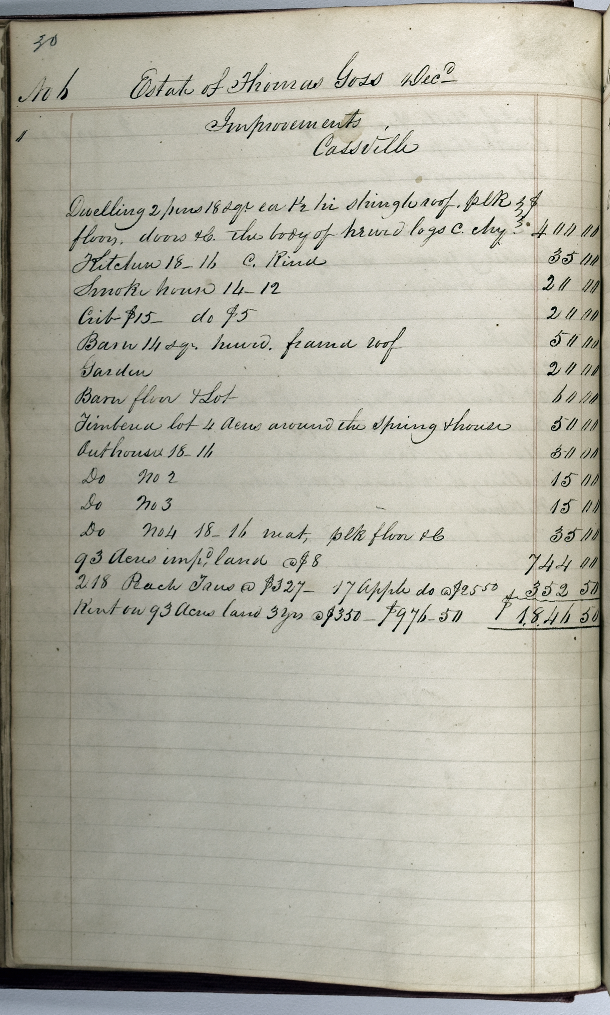 30
No 6 Estate of Thomas Goss Decd
1 Improvements
Cassville
Dwelling 2 pens 18 sqr ea 1½ hi shingle roof. plk
floors. doors &C. the body of hewd logs C. Chy $ 400 00
Kitchen 18-16 C. Kind 35 00
Smoke house 14-12 20 00
Crib $15- do $5 20 00
Barn 14 sqr. hewd. framd roof 50 00
Garden 20 00
Barn floor & Lot 60 00
Timberd lot 4 Acres around the Spring & house 50 00
Outhouse 18-16 30 00
Do No 2 15 00
Do No 3 15 00
Do No 4 18-16 neat, plk floor &C 35 00
93 Acres impd land @ $8 744 00
218 Peach Trees @ $327- 17 Apple do @ $25 50 352 50
Rent on 93 Acres land 3 yrs @ $350 - $976-50 $ 1846 50